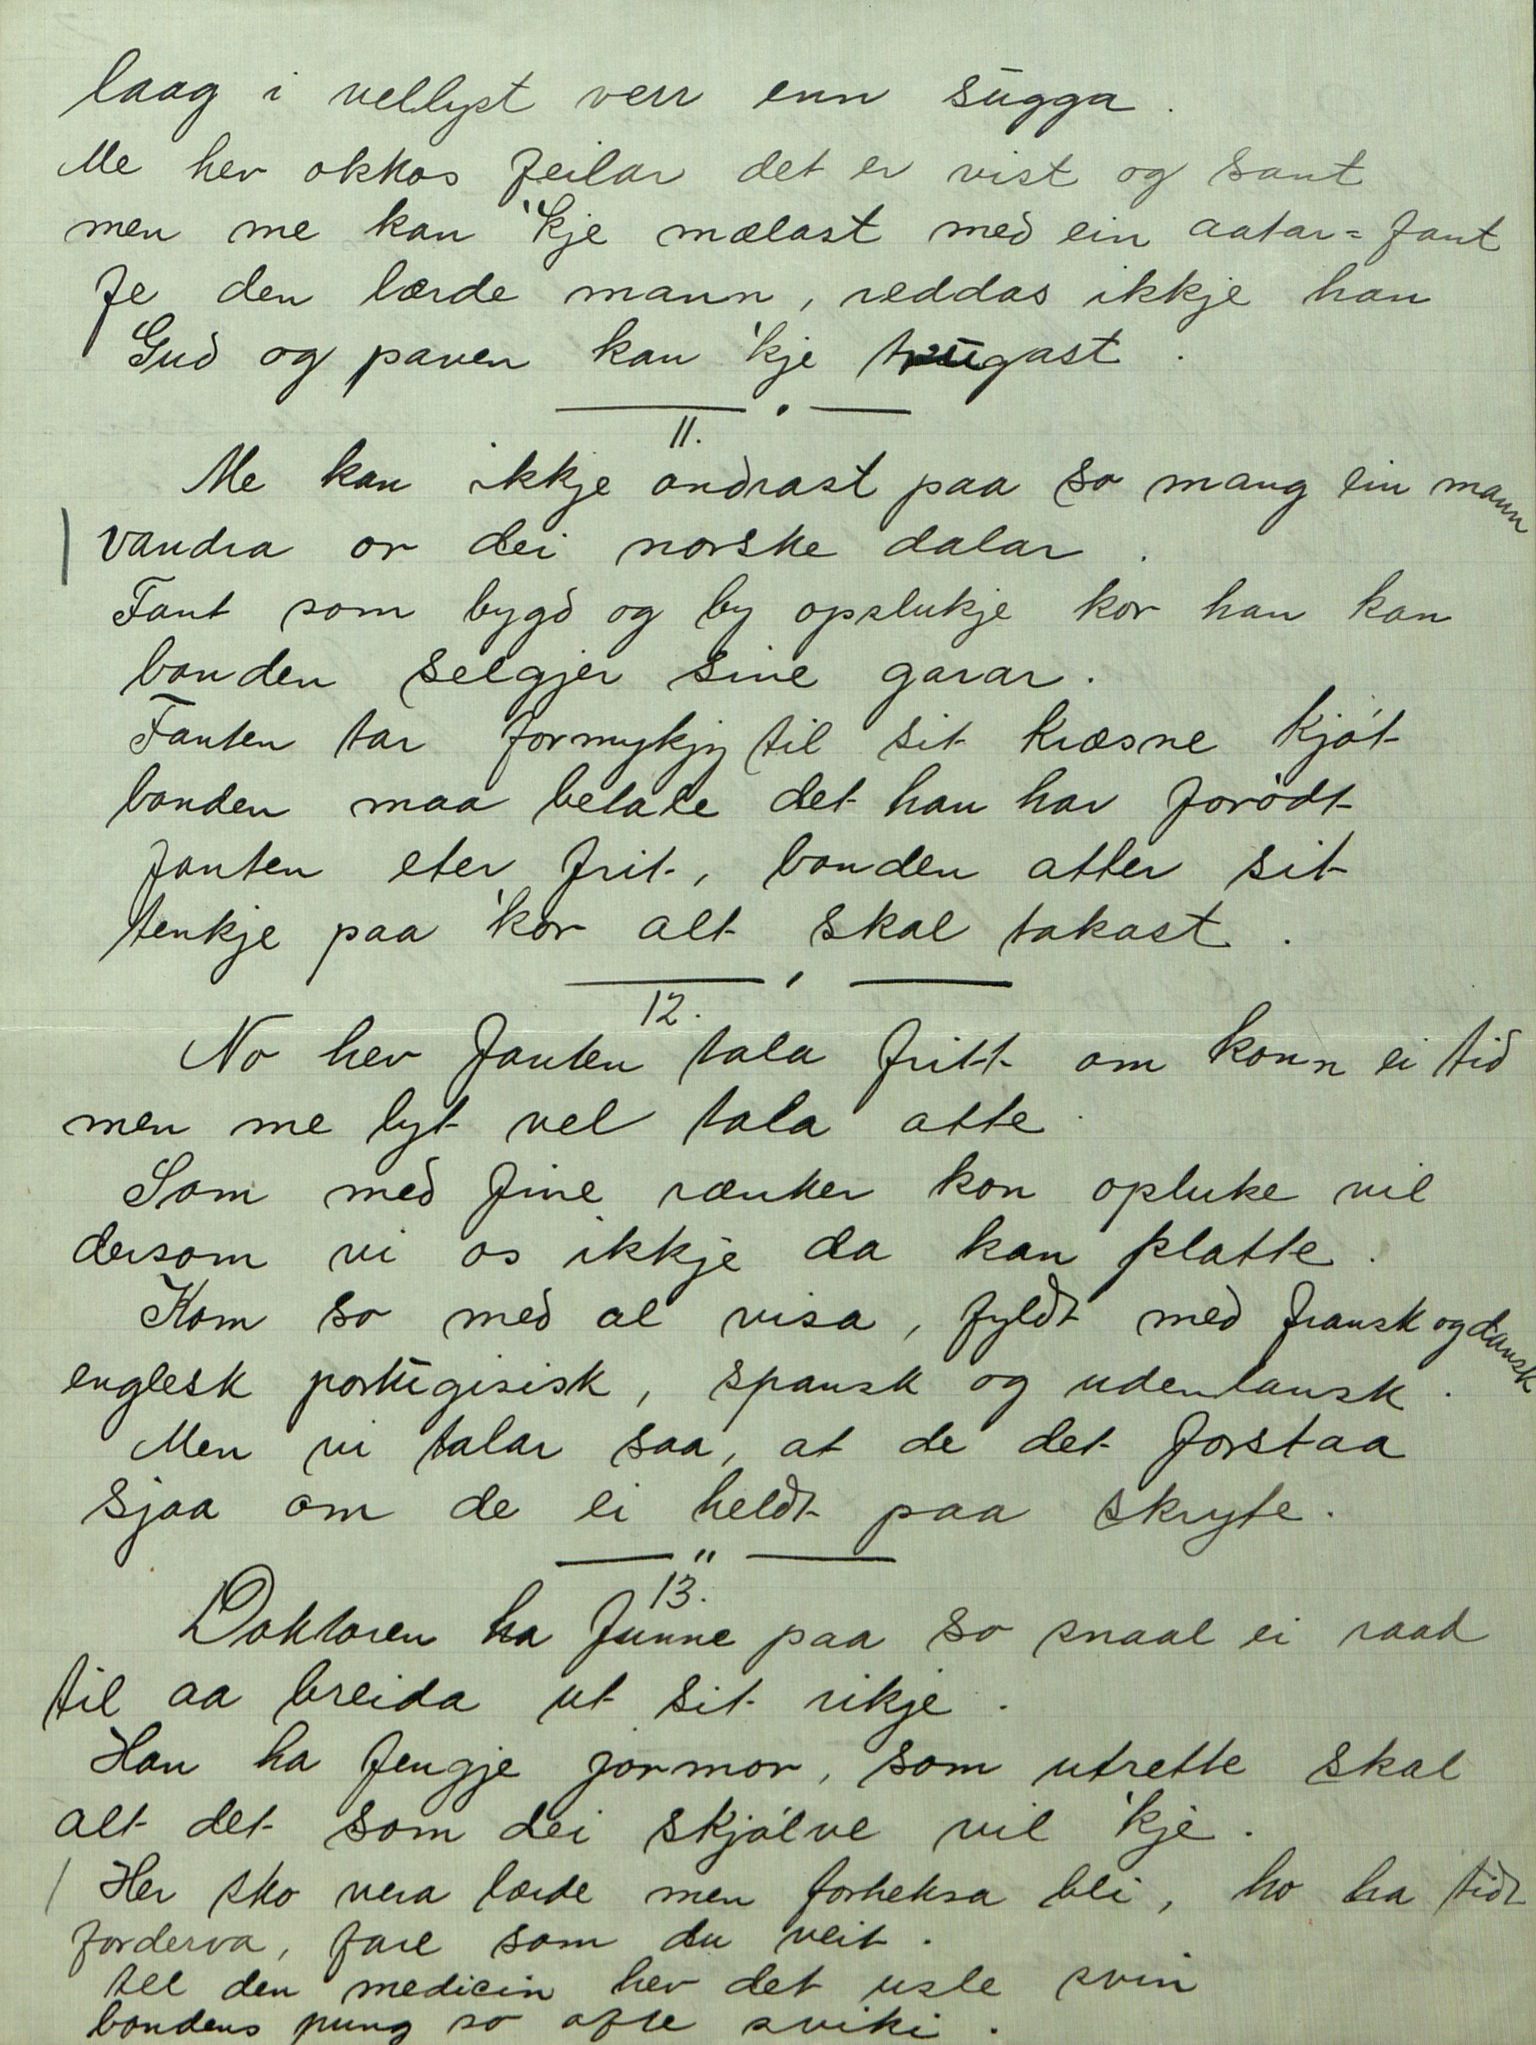 laag i vellyst verr enn sugga.
Me hev okkos feilar det er vist og sant
men me kan 'kje mælast med ein aatar=fant
Fe den lærde mann, reddas ikkje han
Gud og paven kan 'kje trugast.
11.
Me kan ikkje ondrast paa so mang ein mann
vandra or dei norske dalar.
Fant som bygd og by opslukje kor han kan
bonden selgjer sine garar.
Fanten tar formykjy til sit kræsne kjøt
bonden maa betale det han har forødt
fanten eter frit, bonden atter sit
tenkje paa 'kor alt skal takast.
12.
No hev fanten tala fritt om konn ei tid
men me lyt vel tala atte.
Som med fine rænker kon opluke vil
dersom vi os ikkje da kan platte.
Kom so med al visa, fyldt med fransk og dansk
englesk portugisisk, spansk og udenlansk.
Men vi talar saa, at de det forstaa
sjaa om de ei heldt paa skryte.
13.
Doktoren ha funne paa so snaal ei raad
til aa breida ut sit rikje.
Han ha fengje jormor, som utrette skal
alt det som dei skjølve vil 'kje.
Her sko vera lærde men forheksa bli, ho ha tidt
forderva, fare som du veit.
tel den medicin hev det usle svin
bondens pung so ofte sviki.